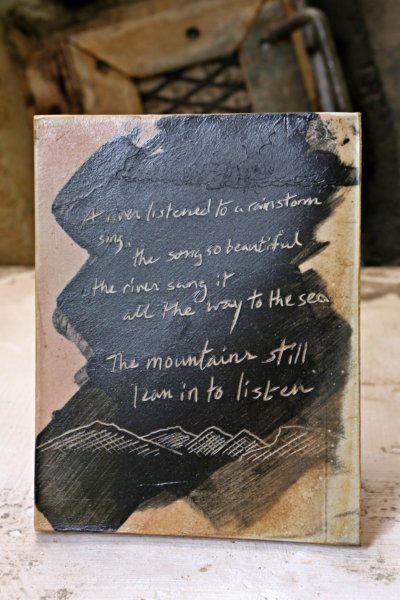 A river listened to a rainstorm
sing,
the song so beautiful
the river sang it
all the way to the sea
The mountains still
lean in to listen